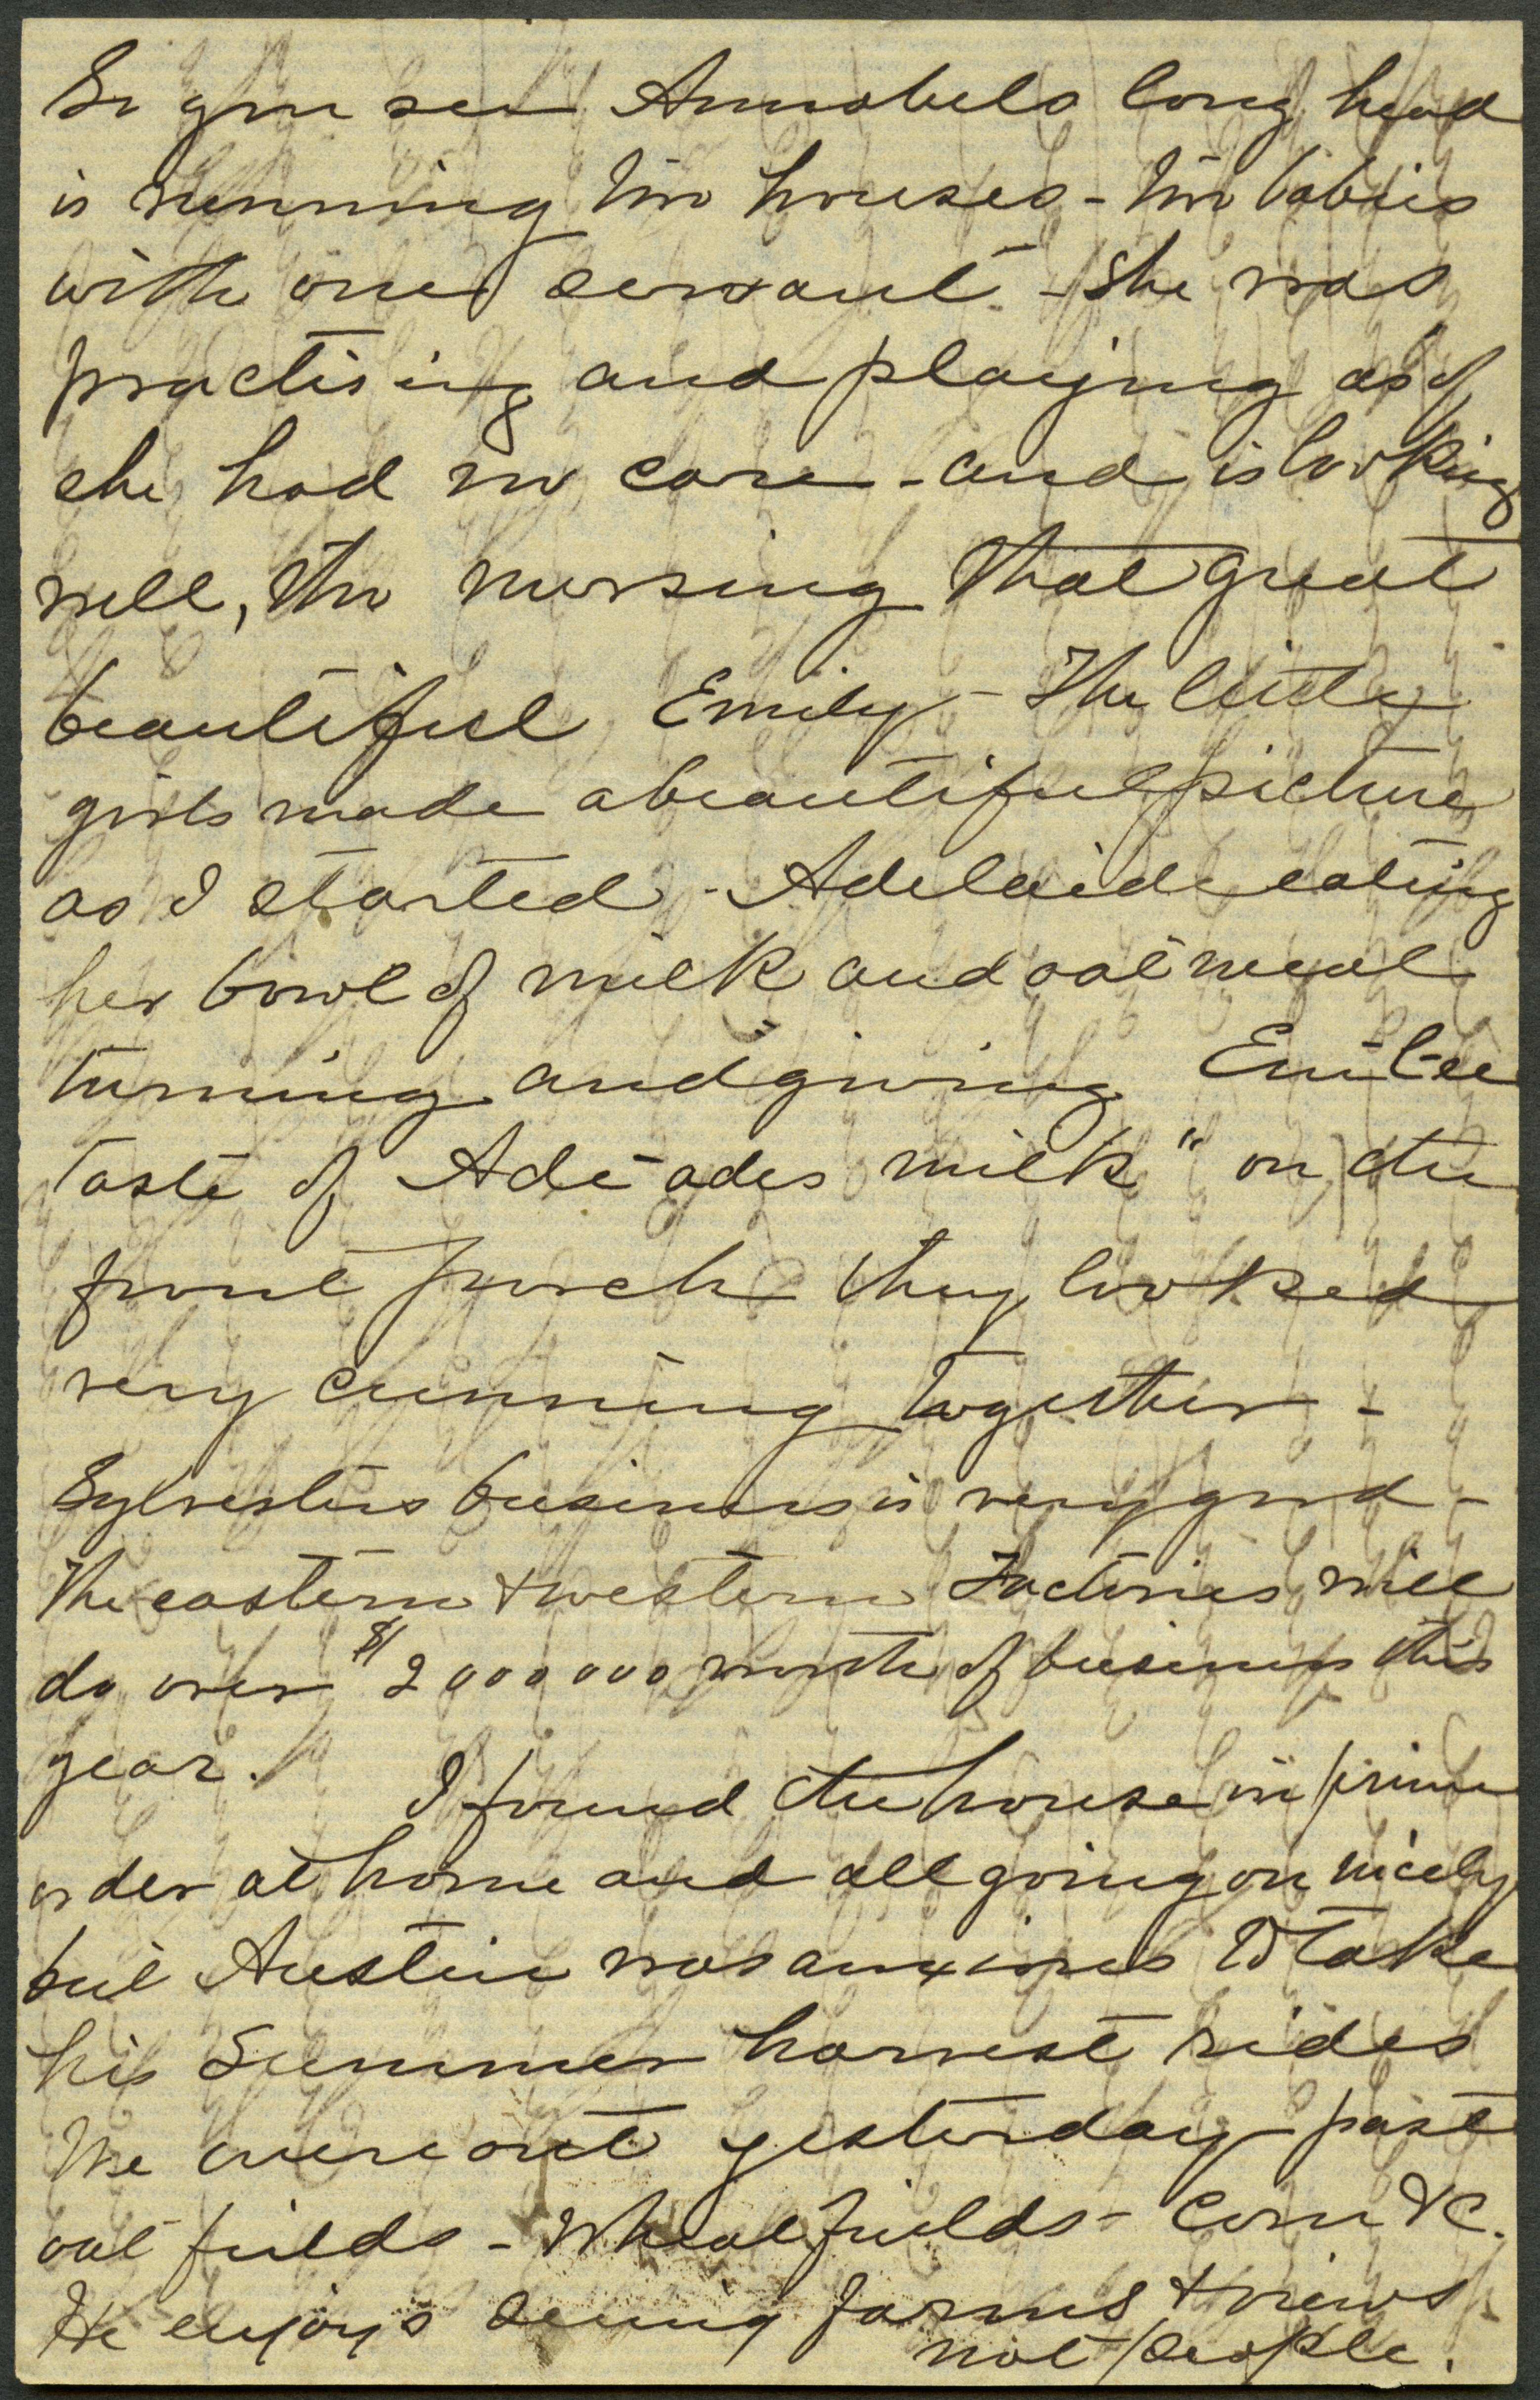 So you see Annabels long head
is running two houses - two babies
with one servant - She was
practising and playing as if
she had no care - and is looking
well, tho nursing that great
beautiful Emily - The little
girls made a beautiful picture
as I started - Adelaide eating
her bowl of milk and oat meal
turning and giving "Em-i-lee
taste of Ade-ades milk" on the
front porch they looked
very cunning together -
Sylvesters business is very good -
The eastern & western Factories will
do over $2000000 worth of business this
year. I found the house in prime
order at home and all going on nicely
but Austin was anxious to take
his Summer harvest rides
We were out yesterday past
oat fields - Wheat fields - Corn &c.
He enjoys seeing farms & views
not people.